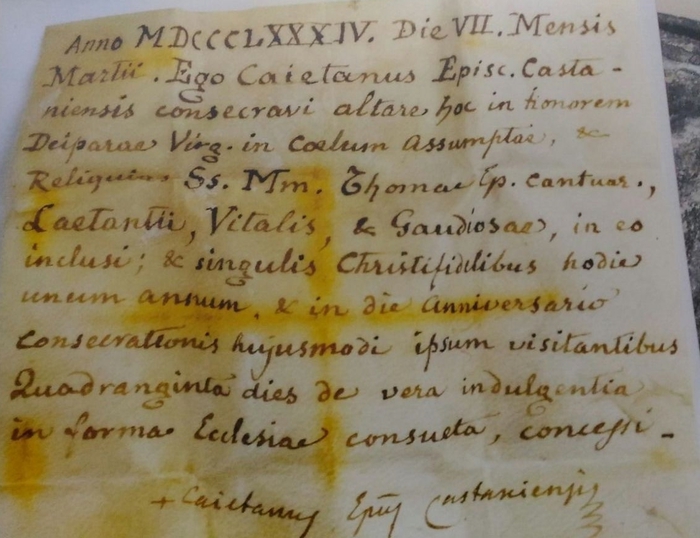 Anno MDCCCLXXXIV. Die VII. Mensis
Martii. Ego Caietanus Episc. Casta-
niensis consecravi altare hoc in honorem
Deiparae Virg. in Coelum Assumptae, &
Reliquias Ss. Mm. Thomae Ep. Cantuar.,
Laetantii, Vitalis, & Gaudiosae, in eo
inclusi; & singulis Christifidelibus hodie
unum annum, & in die Anniversario
Consecrationis hujusmodi ipsum visitantibus
Quadranginta dies de vera indulgentia
in forma Ecclesiae consueta, concessi-
+ Caietanus Epus Castaniensis